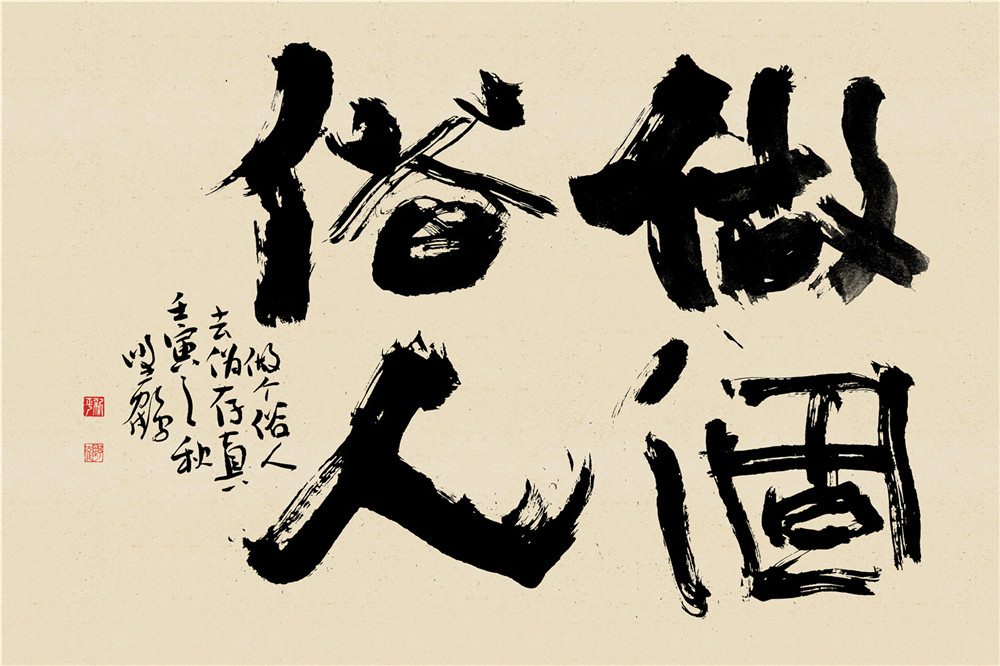 做個
俗人
做个俗人
去伪存真
壬寅之秋
鹤